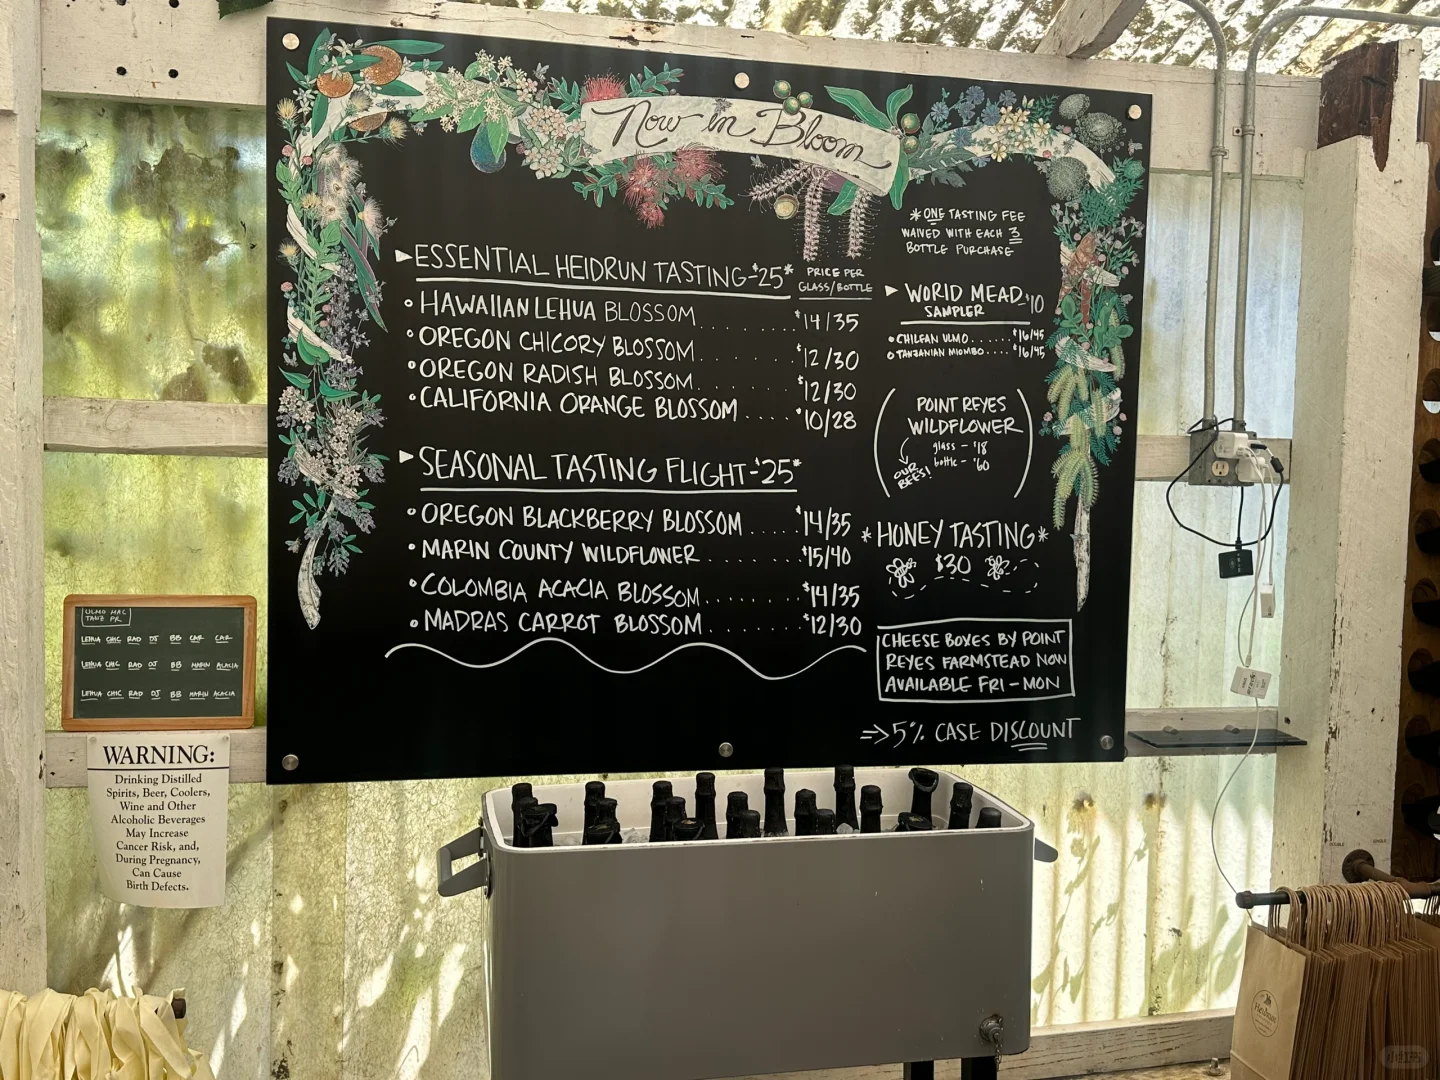 Now in Bloom
*ONE TASTING FEE
WAIVED WITH EACH 3
BOTTLE PURCHASE
►ESSENTIAL HEIDRUN TASTING-$25*
PRICE PER
GLASS/BOTTLE
• HAWAIIAN LEHUA BLOSSOM........$14/35
• OREGON CHICORY BLOSSOM........$12/30
• OREGON RADISH BLOSSOM........$12/30
• CALIFORNIA ORANGE BLOSSOM....$10/28
►SEASONAL TASTING FLIGHT-$25*
• OREGON BLACKBERRY BLOSSOM.....$14/35
• MARIN COUNTY WILDFLOWER........$15/40
• COLOMBIA ACACIA BLOSSOM........$14/35
• MADRAS CARROT BLOSSOM........$12/30
► WORLD MEAD
SAMPLER -$10
• CHILEAN ULMO......$16/45
• TANZANIAN MIOMBO....$16/45
POINT REYES
WILDFLOWER
glass - $18
bottle - $60
OUR
BEES!
*HONEY TASTING*
$30
CHEESE BOXES BY POINT
REYES FARMSTEAD NOW
AVAILABLE FRI - MON
⇒5% CASE DISCOUNT
ULMO MAC
TANZ PR
LEHUA CHIC RAD OJ BB CAR CAR
LEHUA CHIC RAD OJ BB MARIN ACACIA
LEHUA CHIC RAD OJ BB MARIN ACACIA
WARNING:
Drinking Distilled
Spirits, Beer, Coolers,
Wine and Other
Alcoholic Beverages
May Increase
Cancer Risk, and,
During Pregnancy,
Can Cause
Birth Defects.
Heidrun